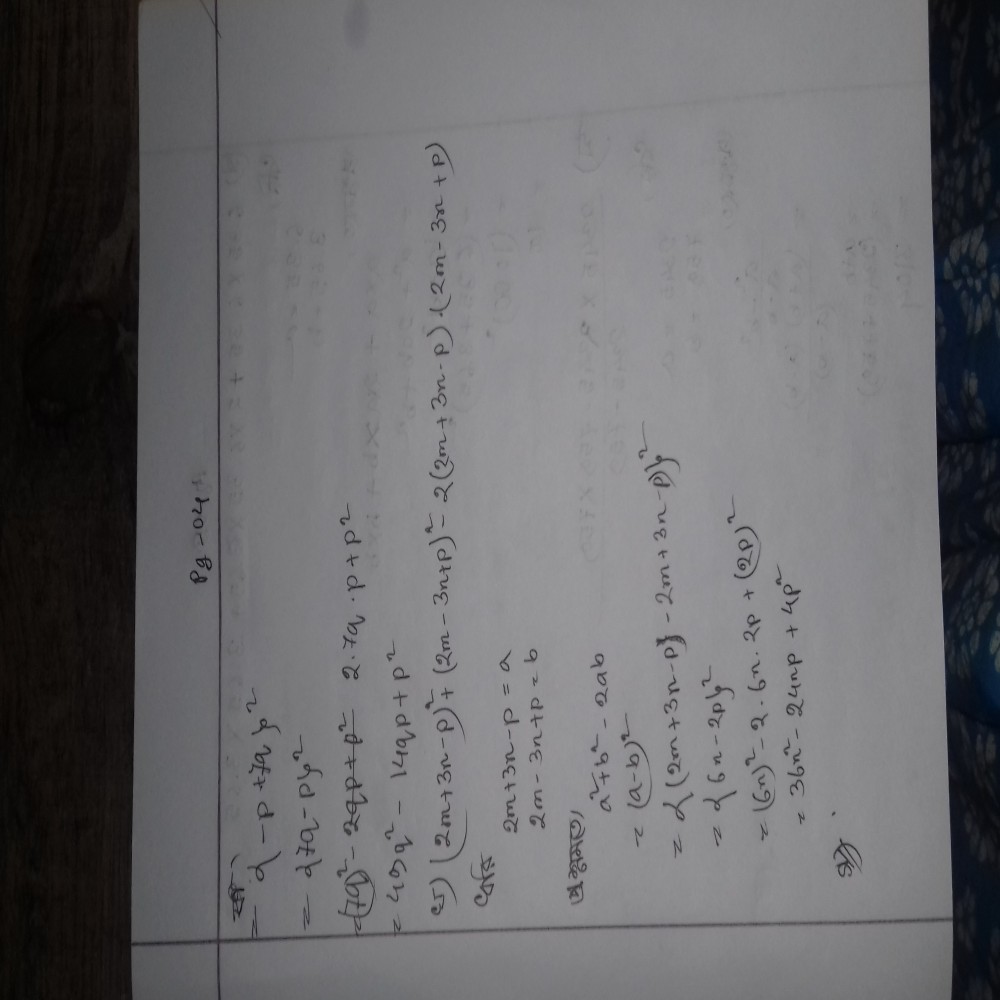 Pg - 04
= { - p + 7q }²
= {7q - p}²
= (7q)² - 2 . 7q . p + p²
= 49q² - 14qp + p²
(2m + 3n - p)² + (2m - 3n + p)² - 2(2m + 3n - p) . (2m - 3n + p)
ধরি
2m + 3n - p = a
2m - 3n + p = b
a² + b² - 2ab
= (a - b)²
= {(2m + 3n - p) - 2m + 3n - p)}²
= {6n - 2p}²
= (6n)² - 2 . 6n . 2p + (2p)²
= 36n² - 24np + 4p²